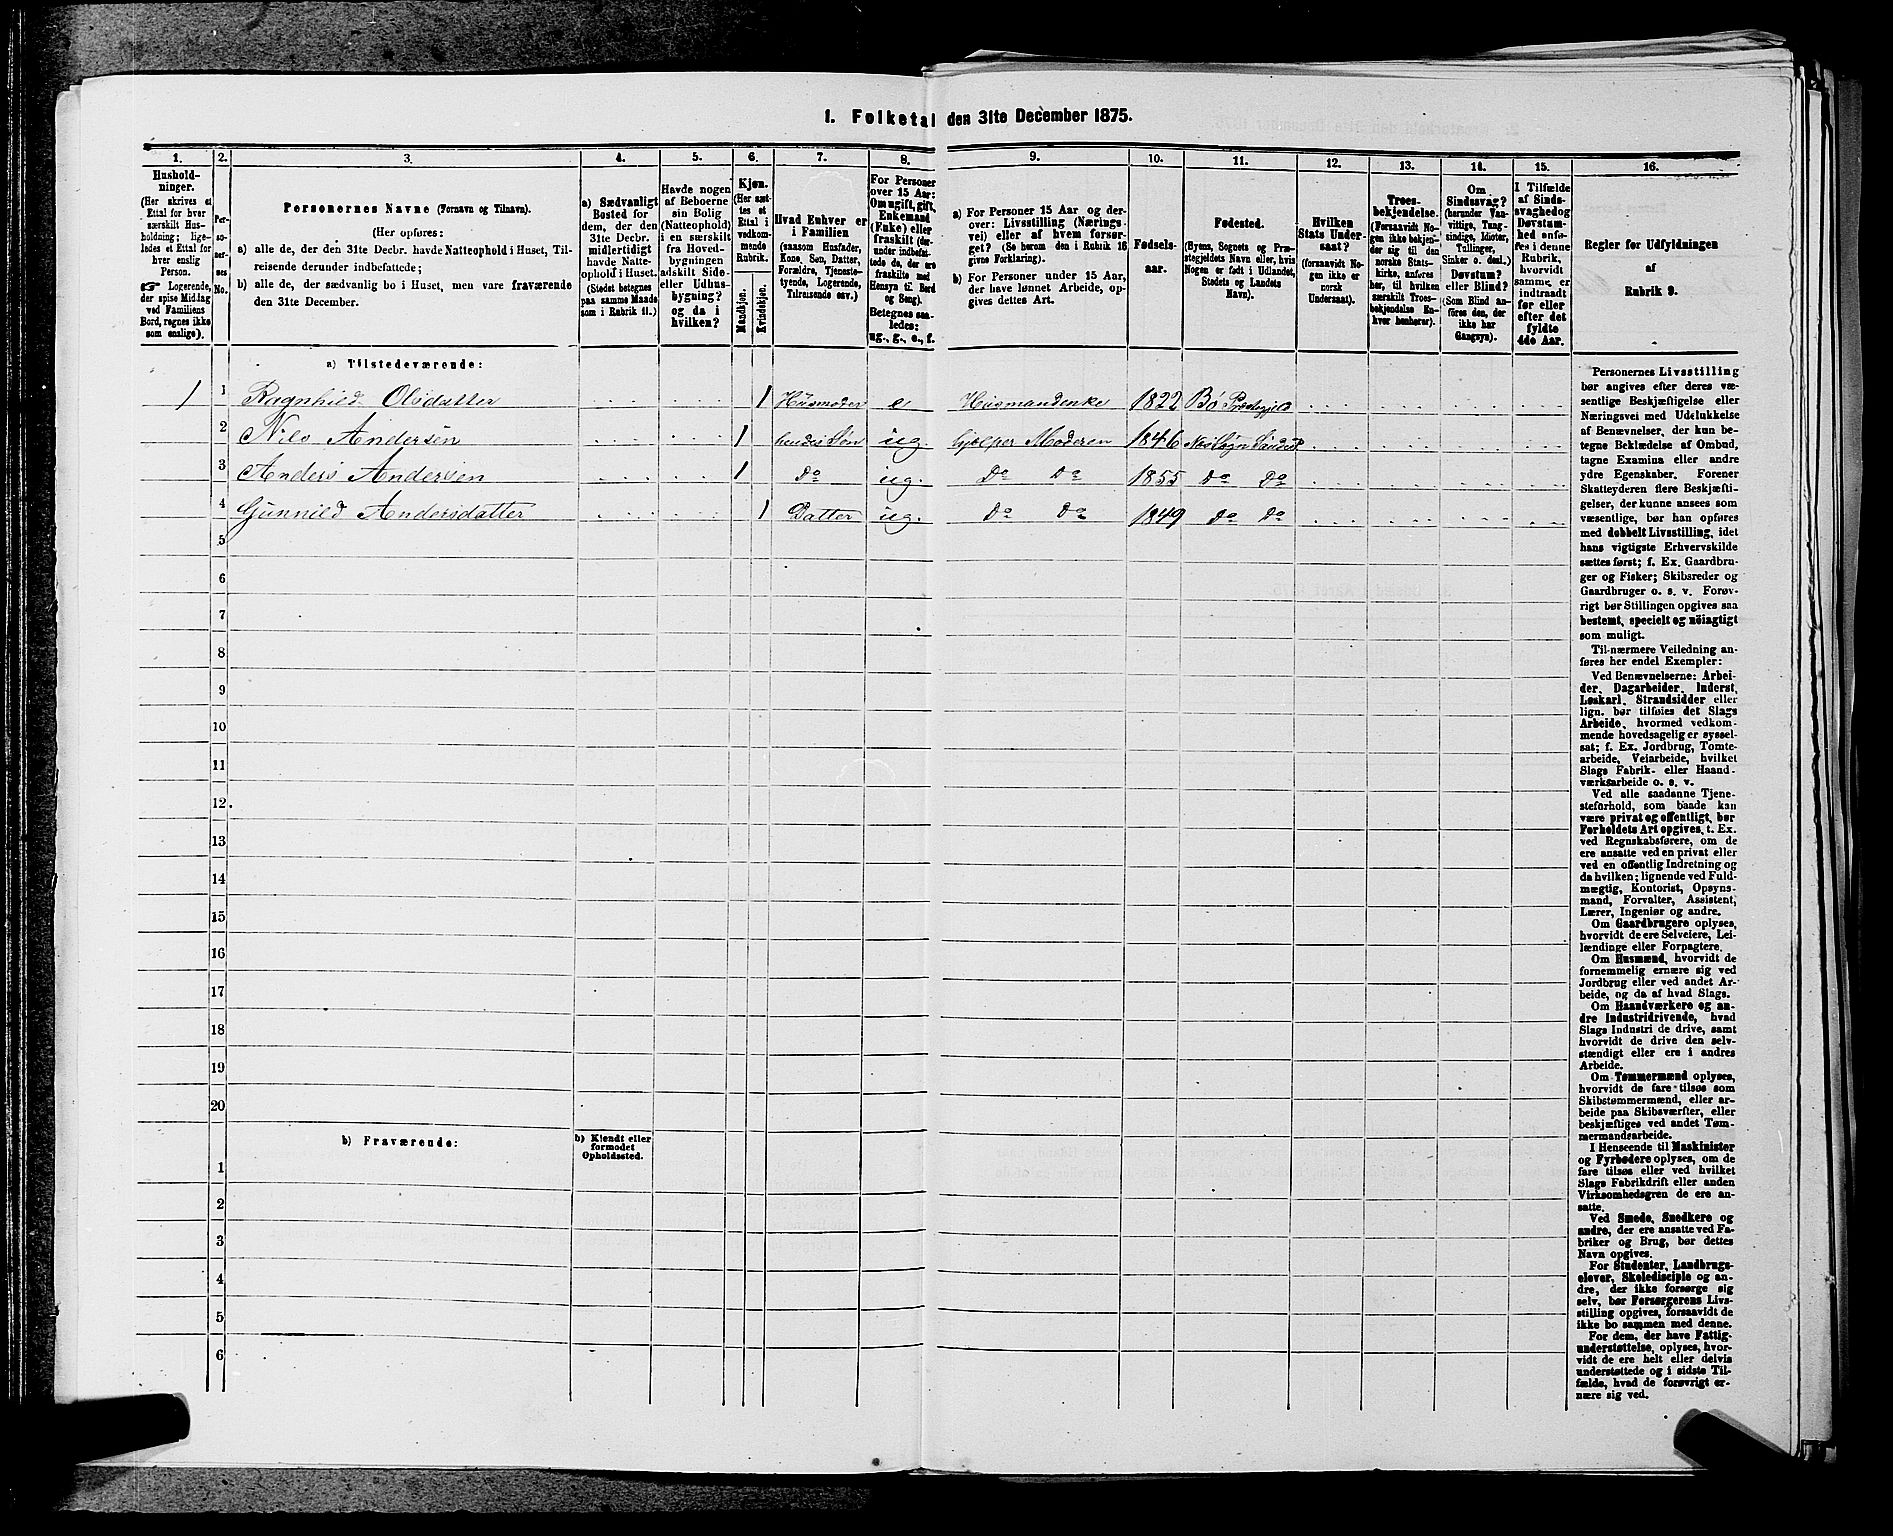 1. Folketal den 31te December 1875.
1. 2. 3. 4. 5. 6. 7. 8. 9. 10. 11. 12. 13. 14. 15. 16.
Hushold-
ninger.
(Her skrives et
Ettal for hver
særskilt Hus-
holdning; lige-
ledes et Ettal for
hver enslig
Person.
☞ Logerende,
der spise Middag
ved Familiens
Bord, regnes ikke
som enslige).
Per-
so-
ner-
nes
No.
Personernes Navne (Fornavn og Tilnavn).
(Her opføres:
a) alle de, der den 31te Decbr. havde Natteophold i Huset, Til-
reisende derunder indbefattede;
b) alle de, der sædvanlig bo i Huset, men vare fraværende
den 31te December.
a) Sædvanligt
Bosted for
dem, der den
31te Decbr.
midlertidigt
havde Natte-
ophold i Huset.
(Stedet betegnes
paa samme Maade
som i Rubrik 11.)
Havde nogen
af Beboerne
sin Bolig
(Natteophold)
i en særskilt
fra Hoved-
bygningen
adskilt Side-
eller Udhus-
bygning?
og da i
hvilken?
Kjøn.
(Her sæt-
tes et
Ettal i
vedkom-
mende
Rubrik.
Mandkjøn.
Kvindekjøn.
Hvad Enhver er
i Familien
(saasom Husfader,
Kone, Søn, Datter,
Forældre, Tjeneste-
tyende, Logerende,
Tilreisende osv.)
For Personer
over 15 Aar:
Om ugift, gift,
Enkemand
(Enke) eller
fraskilt (der-
under indbefat-
tede de, der ere
fraskilte med
Hensyn til Bord
og Seng).
Betegnes saa-
ledes:
ug., g., e., f.
a) For Personer 15 Aar og der-
over: Livsstilling (Nærings-
vei) eller af hvem forsør-
get? (Se herom den i Rubrik 16
givne Forklaring).
b) For Personer under 15 Aar,
der have lønnet Arbeide, op-
gives dettes Art.
Fødsels-
aar.
Fødested.
(Byens, Sognets og Præ-
stegjeldets Navn eller, hvis
Nogen er født i Udlandet,
Stedets og Landets
Navn).
Hvilken
Stats Under-
saat?
(forsaavidt No-
gen ikke er
norsk
Undersaat).
Troes-
bekjendelse.
(Forsaavidt No-
gen ikke bekjen-
der sig til den
norske Stats-
kirke, anføres
her, til hvilken
særskilt Troes-
bekjendelse En-
hver henhører).
Om
Sindssvag?
(herunder Van-
vittige, Tung-
sindige, Idioter,
Tullinger,
Sinker o. desl.)
Døvstum?
eller Blind?
(Som Blind an-
føres den, der
ikke har
Gangsyn).
I Tilfælde
af Sinds-
svaghed og
Døvstum-
hed anfø-
res i denne
Rubrik,
hvorvidt
samme er
indtraadt
før eller
efter det
fyldte
4de Aar.
Regler for Udfyldningen
af
Rubrik 9.
a) Tilstedeværende:
1 1 Ragnhild Olsdatter 1 Husmoder e Husmandenke 1822 Bö Præstegjeld
2 Nils Andersen 1 hendes Søn ug. hjelper Moderen 1846
3 Anders Andersen 1 Do ug. Do Do 1855 Do Do
4 Gunnild Andersdatter 1 Datter ug. Do Do 1849 Do Do
5
6
7
8
9
10
11
12
13
14
15
16
17
18
19
20
b) Fraværende:
b) Kjendt eller
formodet
Opholdssted.
1
2
3
4
5
6
Personernes Livsstilling
bør angives efter deres væ-
sentlige Beskjæftigelse eller
Næringsvei med Udelukkelse
af Benævnelser, der kun be-
tegne Beklædelse af Ombud,
tagne Examina eller andre
ydre Egenskaber. Forener
Skatteyderen flere Beskjæfti-
gelser, der kunne ansees som
væsentlige, bør han opføres
med dobbelt Livsstilling, idet
hans vigtigste Erhvervskilde
sættes først; f. Ex. Gaardbru-
ger og Fisker; Skibsreder og
Gaardbruger o. s. v. Forøv-
rigt bør Stillingen opgives saa
bestemt, specielt og nøiagtigt
som muligt.
Til nærmere Veiledning an-
føres her endel Exempler:
Ved Benævnelserne: Arbei-
der, Dagarbeider, Inderst,
Løskarl, Strandsidder eller
lign. bør tilføies det Slags
Arbeide, hvormed vedkom-
mende hovedsagelig er syssel-
sat; f. Ex. Jordbrug, Tomte-
arbeide, Veiarbeide, hvilket
Slags Fabrik- eller Haand-
værksarbeide o. s. v.
Ved alle saadanne Tjene-
steforhold, som baade kan
være privat og offentligt, bør
Forholdets Art opgives, t. Ex.
ved Regnskabsførere, om de
ere ansatte ved en privat eller
ved en offentlig Indretning og
da hvilken; lignende ved Fuld-
mægtig, Kontorist, Opsyns-
mand, Forvalter, Assistent,
Lærer, Ingeniør og andre.
Om Gaardbrugere oplyses,
hvorvidt de ere Selveiere, Lei-
lændinge eller Forpagtere.
Om Husmænd, hvorvidt de
fornemmelig ernære sig ved
Jordbrug eller ved andet Ar-
beide, og da af hvad Slags.
Om Haandværkere og an-
dre Industridrivende, hvad
Slags Industri de drive, samt
hvorvidt de drive den selv-
stændigt eller ere i andres
Arbeide.
Om Tømmermænd oplyses,
hvorvidt de fare tilsøs som
Skibstømmermænd, eller ar-
beide paa Skibsværfter, eller
beskjæftiges ved andet Tøm-
mermandsarbeide.
I Henseende til Maskinister
og Fyrbødere oplyses, om de
fare tilsøs eller ved hvilket
Slags Fabrikdrift eller anden
Virksomhedsgren de ere an-
satte.
Ved Smede, Snedkere og
andre, der ere ansatte ved Fa-
briker og Brug, bør dettes
Navn opgives.
For Studenter, Landbrugs-
elever, Skoledisciple og an-
dre, der ikke forsørge sig
selv, bør Forsørgerens Livs-
stilling opgives, forsaavidt de
ikke bo sammen med denne.
For dem, der have Fattig-
understøttelse, oplyses, hvor-
vidt de ere helt eller delvis
understøttede og i sidste Til-
fælde, hvad de forøvrigt er-
nære sig ved.